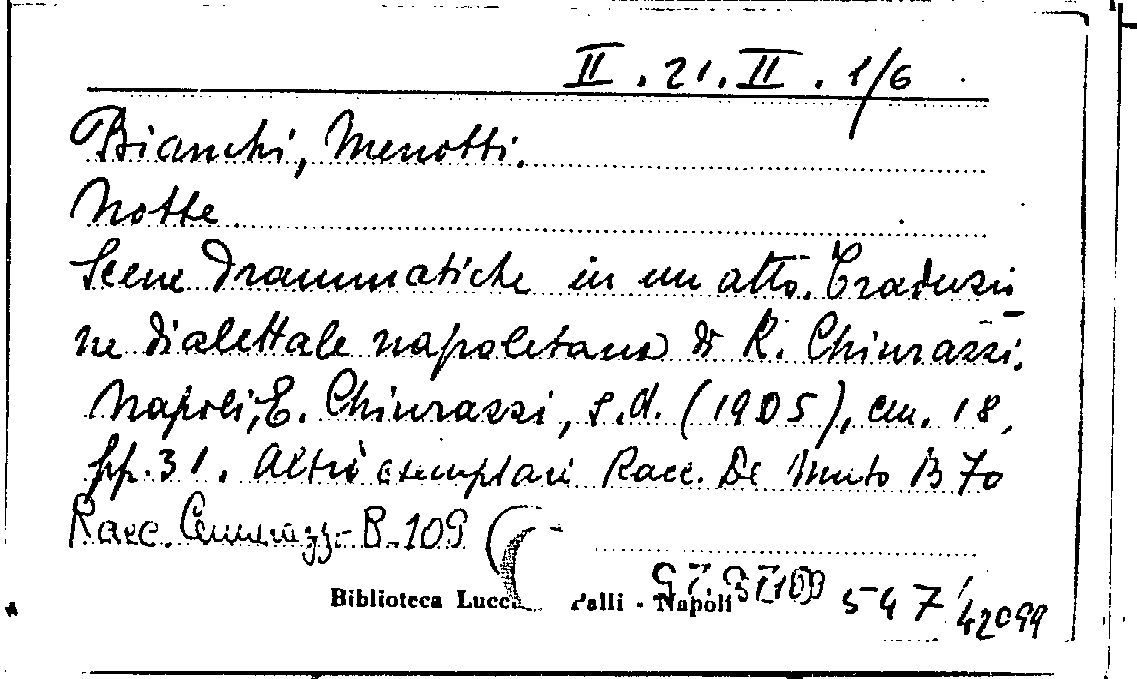 II. 21. II. 1/6
Bianchi, Menotti.
Notte
Scene drammatiche in un atto. Traduzio
ne dialettale napoletana di R. Chiurazzi.
Napoli, E. Chiurazzi, s.d. (1905), cm. 18,
pp. 31. Altri esemplari Racc. De Muto B 70
Racc. B-109
Biblioteca Lucc Palli - Napoli
547/42099